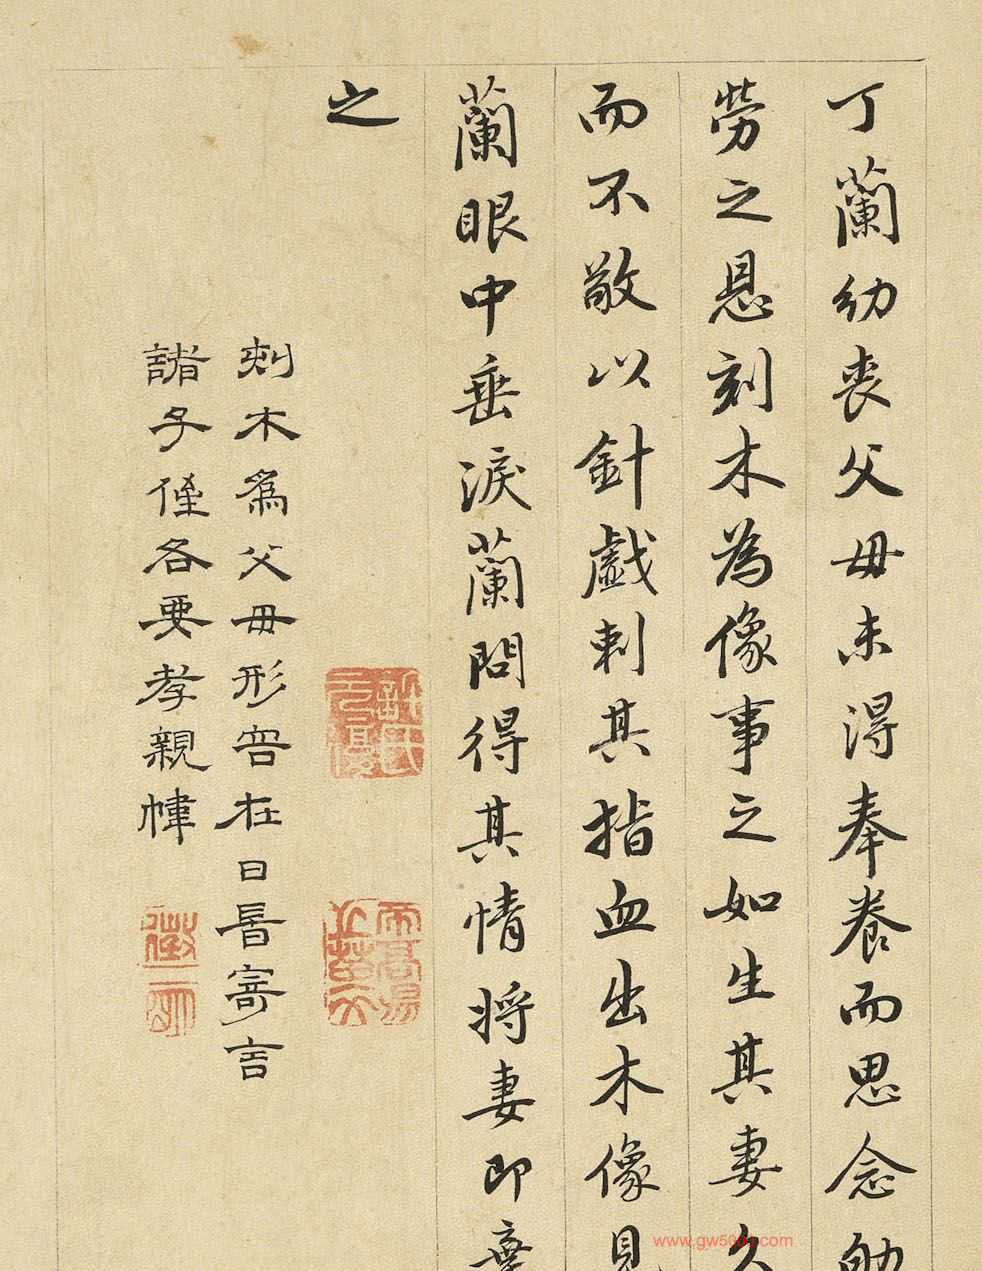 丁蘭幼喪父母未得奉養而思念劬
勞之恩刻木為像事之如生其妻久
而不敬以針戲刺其指血出木像見
蘭眼中垂淚蘭問得其情將妻即棄
之
刻木爲父母形容在日旹寄言
諸子侄各要孝親幃
徵明